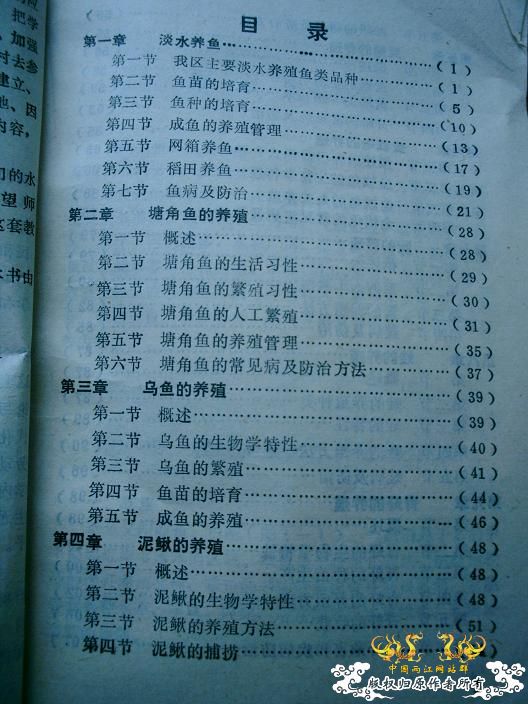 目 录
第一章 淡水养鱼………………………(1)
第一节 我区主要淡水养殖鱼类品种…………(1)
第二节 鱼苗的培育………………………(5)
第三节 鱼种的培育………………………(10)
第四节 成鱼的养殖管理…………………(13)
第五节 网箱养鱼…………………………(17)
第六节 稻田养鱼…………………………(19)
第七节 鱼病及防治………………………(21)
第二章 塘角鱼的养殖……………………(28)
第一节 概述………………………………(28)
第二节 塘角鱼的生活习性………………(29)
第三节 塘角鱼的繁殖习性………………(30)
第四节 塘角鱼的人工繁殖………………(31)
第五节 塘角鱼的养殖管理………………(35)
第六节 塘角鱼的常见病及防治方法………(37)
第三章 乌鱼的养殖………………………(39)
第一节 概述………………………………(39)
第二节 乌鱼的生物学特性………………(40)
第三节 乌鱼的繁殖………………………(41)
第四节 鱼苗的培育………………………(44)
第五节 成鱼的养殖………………………(46)
第四章 泥鳅的养殖………………………(48)
第一节 概述………………………………(48)
第二节 泥鳅的生物学特性………………(48)
第三节 泥鳅的养殖方法…………………(51)
第四节 泥鳅的捕捞………………………
把学
加强
村去参
建立、
也、因
内容。
门的水
望师
这套教
书由
中国两江网站群
版权归原作者所有